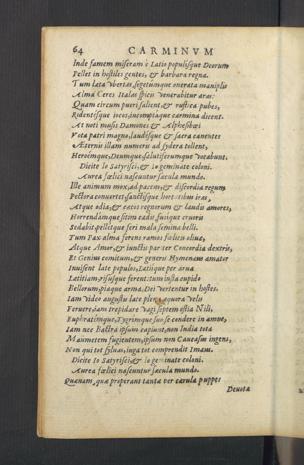 64 CARMINVM
Inde famem miseram è Latio populisque Deorum
Pellet in hostiles gentes, & barbara regna.
Tum lata vbertas, segetumque onerata maniplis
Alma Ceres Italas spicis venerabitur aras:
Quam circum pueri salient, & rustica pubes,
Ridentesque iocos, incomptaque carmina dicent.
At noti musis Damones & Alphesibœi
Vota patri magno, laudesque & sacra canentes
Æternis illam numeris ad sydera tollent,
Heroimque, Deumque, salutiferumque vocabunt.
Dicite Io Satyrisci, & Io geminate coloni.
Aurea fœlici nascuntur sæcula mundo.
Ille animum mox, ad pacem, & discordia regum
Pectora conuertet, sanctisque hortatibus iras,
Atque odia, & cæcos regnorum & laudis amores,
Horrendámque sitim cædis, fususque cruoris
Sedabit, pelletque feri mala semina belli.
Tum Pax alma ferens ramos fœlicis oliuæ,
Atque Amor, & iunctis par ter Concordia dextris,
Et Genius comitum, & generis Hymenæus amator
Inuisent late populos, Latiique per arua
Lætitiam, risusque ferent: tum iusta cupido
Bellorum, piaque arma, Dei vertentur in hostes.
Iam video augustu late plena æquora Velis
Feruere, iam trepidare Vagi septem ostia Nili,
Euphratemque, Tygrimque suo se condere in amne,
Iam nec Bactra ipsum capiunt, non India tota
Maumetem fugientem, ipsum non Caucasus ingens,
Non qui tot syluas, iuga tot comprendit Imaus.
Dicite Io Satyrisci, & Io geminate coloni.
Aurea fœlici nascuntur sæcula mundo.
Quanam, quæ properant tanta ver cærula puppes
Deuota